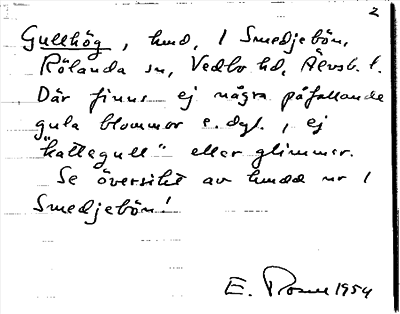 2
Gullhög, hmd, 1 Smedjebön,
Rölanda sn, Vedbo hd, Älvsb. l.
Där finns ej några påfallande
gula blommor e. dyl., ej
"kattegull" eller glimmer.
Se översikt av hmdd nr 1
Smedjebön!
E. Rosell 1954